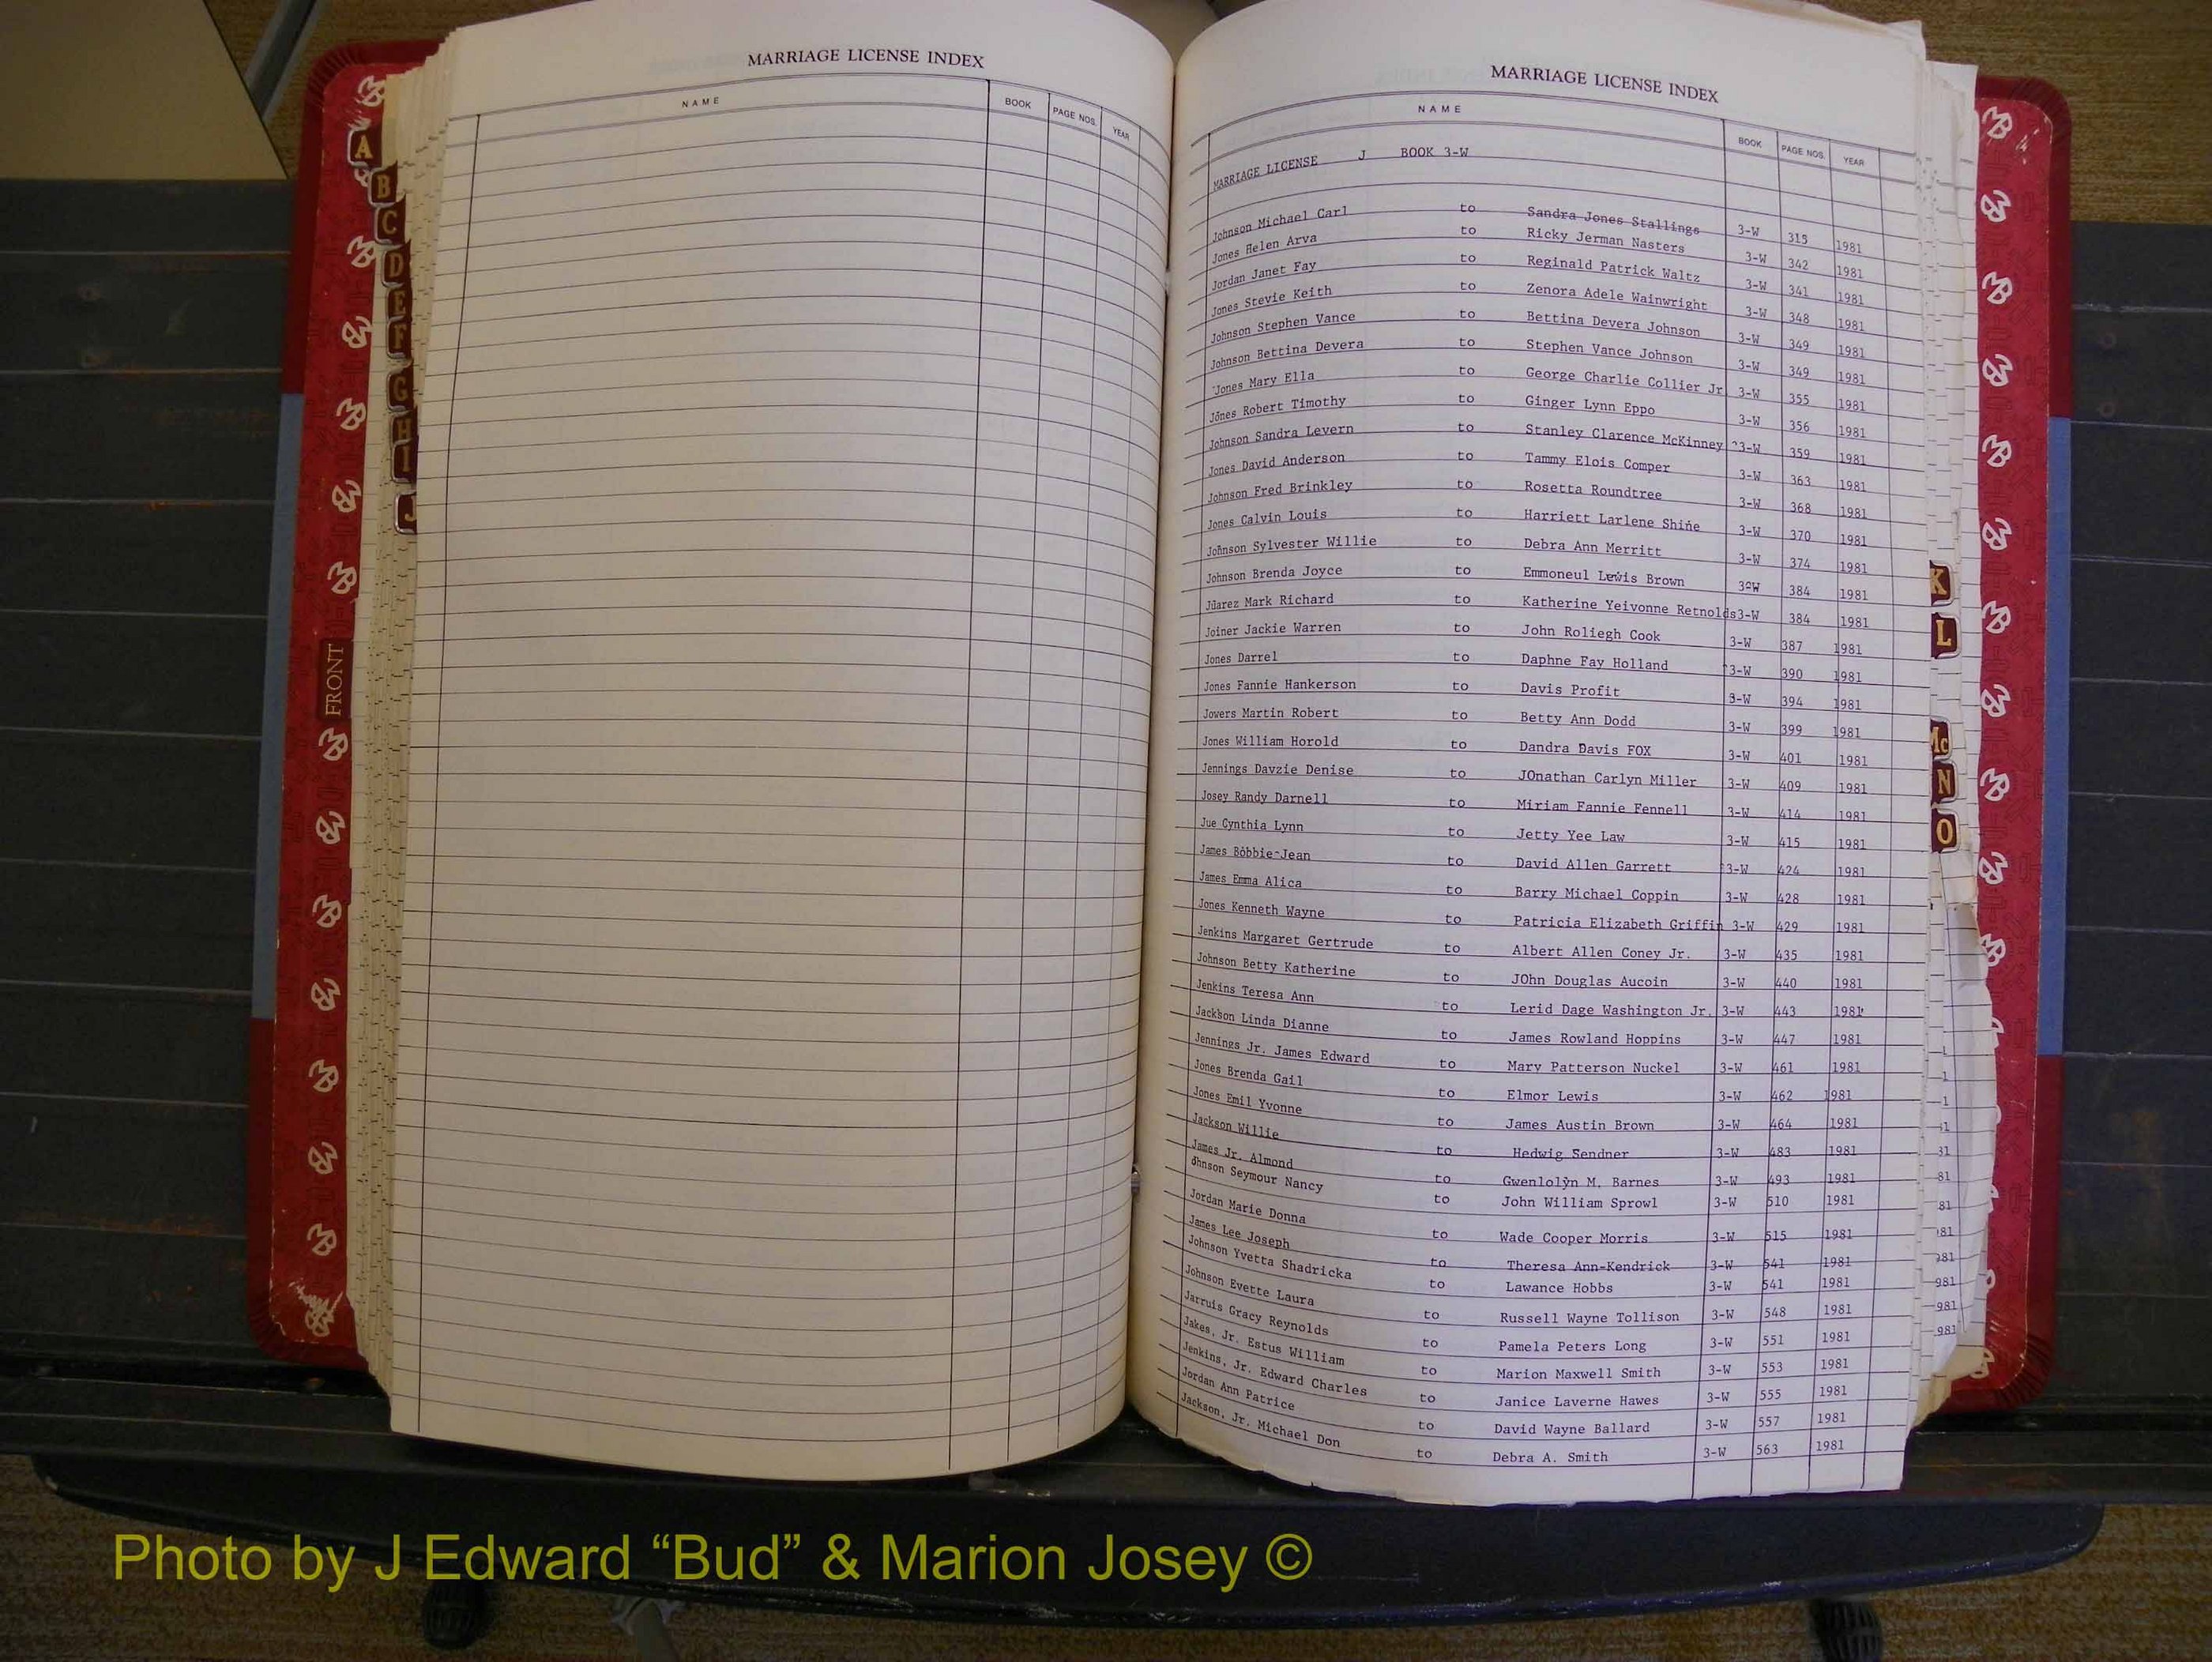 MARRIAGE LICENSE INDEX
NAME BOOK PAGE NOS. YEAR
A
B
C
D
E
F
G
H
I
J
FRONT
MARRIAGE LICENSE INDEX
NAME BOOK PAGE NOS. YEAR
MARRIAGE LICENSE J BOOK 3-W
Johnson Michael Carl to Sandra Jones Stallings 3-W 315 1981
Jones Helen Arva to Ricky Jerman Nasters 3-W 342 1981
Jordan Janet Fay to Reginald Patrick Waltz 3-W 341 1981
Jones Stevie Keith to Zenora Adele Wainwright 3-W 348 1981
Johnson Stephen Vance to Bettina Devera Johnson 3-W 349 1981
Johnson Bettina Devera to Stephen Vance Johnson 3-W 349 1981
Jones Mary Ella to George Charlie Collier Jr 3-W 355 1981
Jones Robert Timothy to Ginger Lynn Eppo 3-W 356 1981
Johnson Sandra Levern to Stanley Clarence McKinney 3-W 359 1981
Jones David Anderson to Tammy Elois Comper 3-W 363 1981
Johnson Fred Brinkley to Rosetta Roundtree 3-W 368 1981
Jones Calvin Louis to Harriett Larlene Shine 3-W 370 1981
Johnson Sylvester Willie to Debra Ann Merritt 3-W 374 1981
Johnson Brenda Joyce to Emmoneul Lewis Brown 3-W 384 1981
Juarez Mark Richard to Katherine Yeivonne Retnolds 3-W 384 1981
Joiner Jackie Warren to John Roliegh Cook 3-W 387 1981
Jones Darrel to Daphne Fay Holland 3-W 390 1981
Jones Fannie Hankerson to Davis Profit 3-W 394 1981
Jowers Martin Robert to Betty Ann Dodd 3-W 399 1981
Jones William Horold to Dandra Davis FOX 3-W 401 1981
Jennings Davzie Denise to JOnathan Carlyn Miller 3-W 409 1981
Josey Randy Darnell to Miriam Fannie Fennell 3-W 414 1981
Jue Cynthia Lynn to Jetty Yee Law 3-W 415 1981
James Bobbie-Jean to David Allen Garrett 3-W 424 1981
James Emma Alica to Barry Michael Coppin 3-W 428 1981
Jones Kenneth Wayne to Patricia Elizabeth Griffin 3-W 429 1981
Jenkins Margaret Gertrude to Albert Allen Coney Jr. 3-W 435 1981
Johnson Betty Katherine to JOhn Douglas Aucoin 3-W 440 1981
Jenkins Teresa Ann to Lerid Dage Washington Jr. 3-W 443 1981
Jackson Linda Dianne to James Rowland Hoppins 3-W 447 1981
Jennings Jr. James Edward to Mary Patterson Nuckel 3-W 461 1981
Jones Brenda Gail to Elmor Lewis 3-W 462 1981
Jones Emil Yvonne to James Austin Brown 3-W 464 1981
Jackson Willie to Hedwig Sendner 3-W 483 1981
James Jr. Almond to Gwenlolyn M. Barnes 3-W 493 1981
ohnson Seymour Nancy to John William Sprowl 3-W 510 1981
Jordan Marie Donna to Wade Cooper Morris 3-W 515 1981
James Lee Joseph to Theresa Ann-Kendrick 3-W 541 1981
Johnson Yvetta Shadricka to Lawance Hobbs 3-W 541 1981
Johnson Evette Laura to Russell Wayne Tollison 3-W 548 1981
Jarruis Gracy Reynolds to Pamela Peters Long 3-W 551 1981
Jakes, Jr. Estus William to Marion Maxwell Smith 3-W 553 1981
Jenkins, Jr. Edward Charles to Janice Laverne Hawes 3-W 555 1981
Jordan Ann Patrice to David Wayne Ballard 3-W 557 1981
Jackson, Jr. Michael Don to Debra A. Smith 3-W 563 1981
K
L
Mc
N
O
Photo by J Edward “Bud” & Marion Josey ©